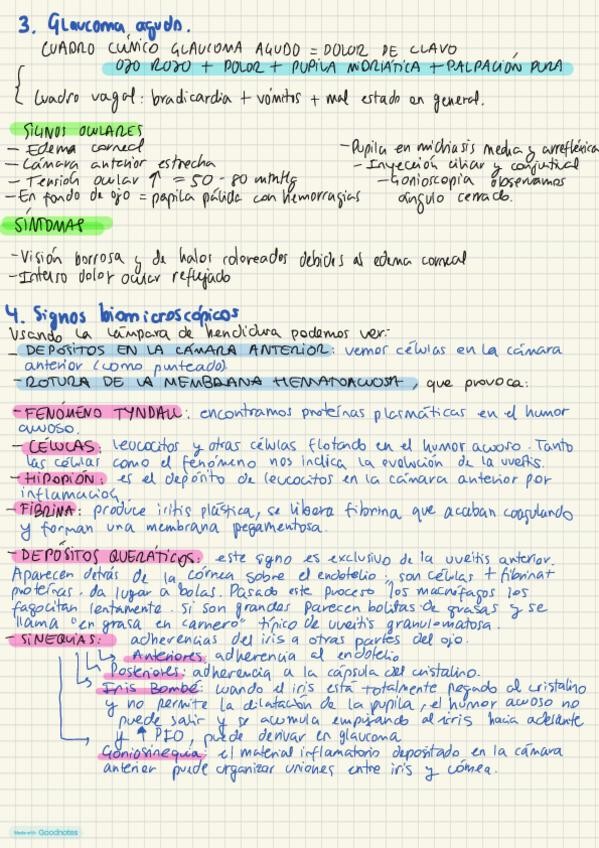 3. Glaucoma agudo.
CUADRO CLÍNICO GLAUCOMA AGUDO = DOLOR DE CLAVO
OJO ROJO + DOLOR + PUPILA MIDRIÁTICA + PALPACIÓN DURA
Cuadro vagal: bradicardia + vómitos + mal estado en general.
SIGNOS OCULARES
- Edema corneal
- Cámara anterior estrecha
- Tensión ocular ↑ = 50 - 80 mmHg
- En fondo de ojo = papila pálida con hemorragias
- Pupila en midriasis media y arrefléxica
- Inyección ciliar y conjuntival
- Gonioscopia observamos
ángulo cerrado.
SÍNTOMAS
- Visión borrosa y de halos coloreados debidos al edema corneal
- Intenso dolor ocular reflejado
4. Signos biomicroscópicos
Usando la lámpara de hendidura podemos ver:
- DEPÓSITOS EN LA CÁMARA ANTERIOR: vemos células en la cámara
anterior (como punteado)
- ROTURA DE LA MEMBRANA HEMATOACUOSA, que provoca:
- FENÓMENO TYNDALL: encontramos proteínas plasmáticas en el humor
acuoso.
- CÉLULAS: leucocitos y otras células flotando en el humor acuoso. Tanto
las células como el fenómeno nos indica la evolución de la uveítis.
- HIPOPIÓN: es el depósito de leucocitos en la cámara anterior por
inflamación.
- FIBRINA: produce iritis plástica, se libera fibrina que acaban coagulando
y forman una membrana pegamentosa.
- DEPÓSITOS QUERÁTICOS: este signo es exclusivo de la uveítis anterior.
Aparecen detrás de la córnea sobre el endotelio: son células + fibrina +
proteínas. da lugar a bolas. Pasado este proceso los macrófagos los
fagocitan lentamente. Si son grandes parecen bolitas de grasas y se
llama "en grasa en carnero" típico de uveítis granulomatosa.
- SINEQUIAS: adherencias del iris a otras partes del ojo.
Anteriores: adherencia al endotelio
Posteriores: adherencia a la cápsula del cristalino.
Iris Bombé: cuando el iris está totalmente pegado al cristalino
y no permite la dilatación de la pupila, el humor acuoso no
puede salir y se acumula empujando al iris hacia adelante
y ↑ PIO, puede derivar en glaucoma
Goniosinequia: el material inflamatorio depositado en la cámara
anterior puede organizar uniones entre iris y córnea.
Made with Goodnotes